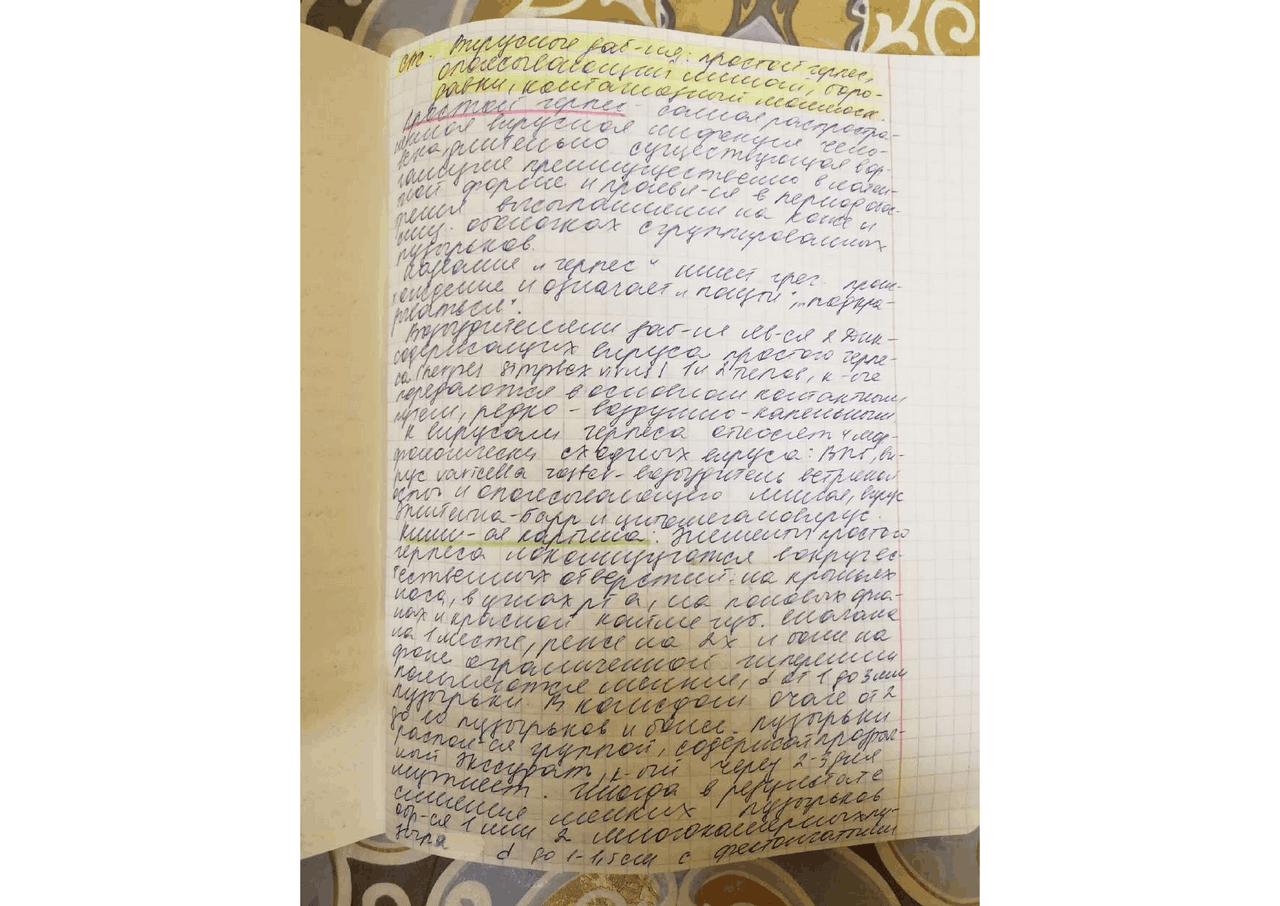 ст. Вирусные заб-ия: простой герпес,
опоясывающий лишай, боро-
давки, контагиозный моллюск.
Простой герпес - самая распростра-
нённая вирусная инфекция чело-
века, длительно существующая в ор-
ганизме преимущественно в латен-
тной форме и проявл-ся в период обос-
трения высыпаниями на коже и
слиз. оболочках сгруппированных
пузырьков.
Название "герпес" имеет греч. проис-
хождение и означает "ползти", "подкра-
дываться".
Возбудителями заб-ия яв-ся 2 Днк-
содержащих вируса простого герпе-
са (herpes simplex virus) 1 и 2 типов, к-ые
передаются в основном контактным
путем, редко - воздушно-капельным
К вирусам герпеса относят 4 мор-
фологически сходных вируса: ВПГ, ви-
рус varicella zoster - возбудитель ветряной
оспы и опоясывающего лишая, вирус
Эпштейна-Барр и цитомегаловирус.
Клини-ая картина: Элементы простого
герпеса локализуются вокруг ес-
тественных отверстий: на крыльях
носа, в углах рта, на половых орга-
нах и красной кайме губ. Вначале
на 1 месте, реже на 2х и более на
фоне ограниченной гиперемии
появляются мелкие, d от 1 до 3 мм
пузырьки. В каждом очаге от 2
до 10 пузырьков и более. Пузырьки
распол-ся группой, содержат прозрач-
ный экссудат, к-ый через 2-3 дня
мутнеет. Иногда в результате
слияния мелких пузырьков
обр-ся 1 или 2 многокамерных пу-
зыря d до 1-1,5 см с фестончатыми